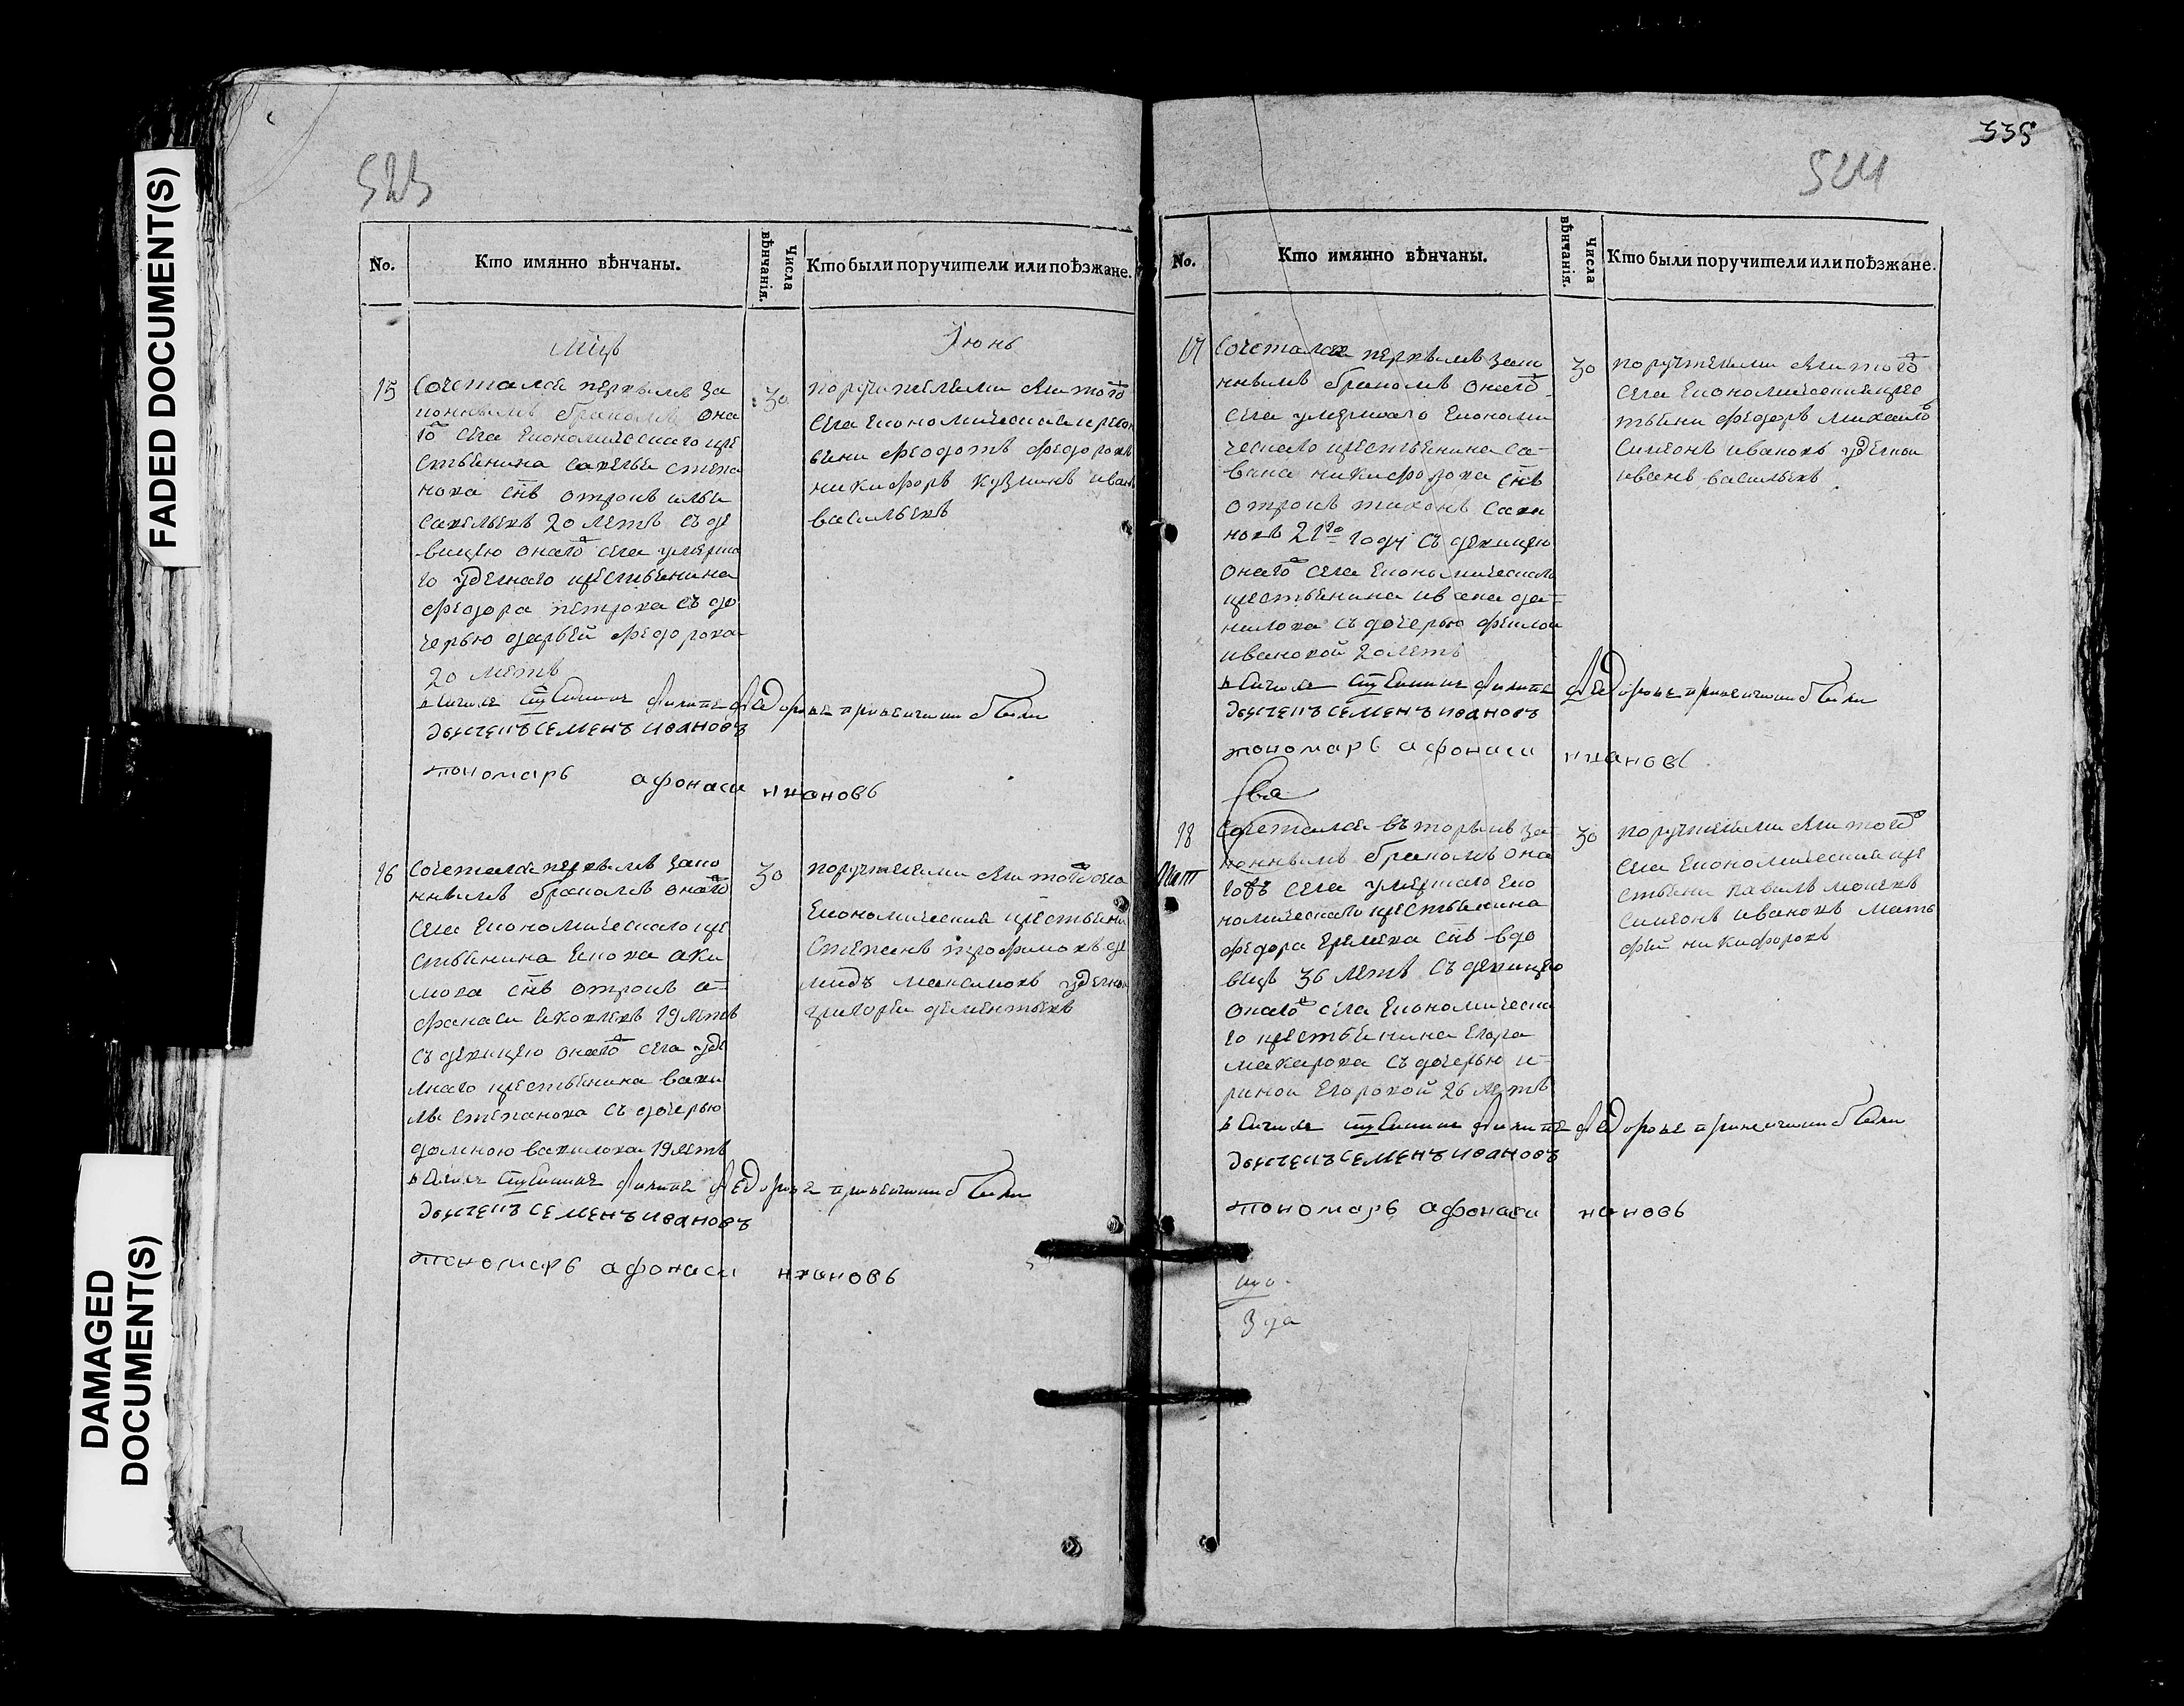 FADED DOCUMENT(S)
DAMAGED
DOCUMENT(S)
523
No.
Кто имянно вѣнчаны.
Числа
вѣнчанія.
Кто были поручители или поѣзжане.
Мцъ
Июнь
15
Сочетался первымъ за
коннымъ бракомъ она
го села Економическаго кре
стьянина савелья степа
нова снъ отрокъ илья
савельевъ 20 летъ съ де
вицею онаго села умерша
го удельнаго крестьянина
федора петрова съ до
черью дарьей федорова
20 летъ
30
поручителями были того
села Економическия кресть
яни федотъ федоровъ
никифоръ кузминъ иванъ
васильевъ
филипъ федоровъ
дьячекъ семенъ ивановъ
пономарь афонаси ивановъ
16
Сочетался первымъ зако
ннымъ бракомъ онаго
села Економическаго кре
стьянина якова аки
мова снъ отрокъ а-
фанаси яковлевъ 19 летъ
съ девицею онаго села уде
лнаго крестьянина вави
лы степанова съ дочерью
домною вавилова 19 летъ
30
поручителями были того села
Економический крестьяни
степанъ трофимовъ де
мидъ максимовъ удельной
григорей дементьевъ
филипъ федоровъ
дьячекъ семенъ ивановъ
пономарь афонаси ивановъ
335
524
No.
Кто имянно вѣнчаны.
Числа
вѣнчанія.
Кто были поручители или поѣзжане.
17
Сочетался первымъ зако
ннымъ бракомъ онаго
села умершаго Економи
ческаго крестьянина са-
вина никифорова снъ
отрокъ тихонъ сави
новъ 21го году съ девицею
онаго села Економическаго
крестьянина ивана да-
нилова съ дочерью феклой
ивановой 20 летъ
30
поручителями были того
села Економический крес
тьяни федоръ михайло
симеонъ ивановъ удельной
иванъ васильевъ
филипъ федоровъ
дьячекъ семенъ ивановъ
пономарь афонаси ивановъ
18
Сочетался вторымъ за-
коннымъ бракомъ она
го села умершаго Еко
номическаго крестьянина
федора еремева снъ вдо
вецъ 36 летъ съ девицею
онаго села Економическа
го крестьянина Егора
макарова съ дочерью и-
риной Егоровой 26 летъ
30
поручителями были того
села Економический кре
стьяни павилъ
симеонъ ивановъ мат
фей никифоровъ
филипъ федоровъ
дьячекъ семенъ ивановъ
пономарь афонаси ивановъ